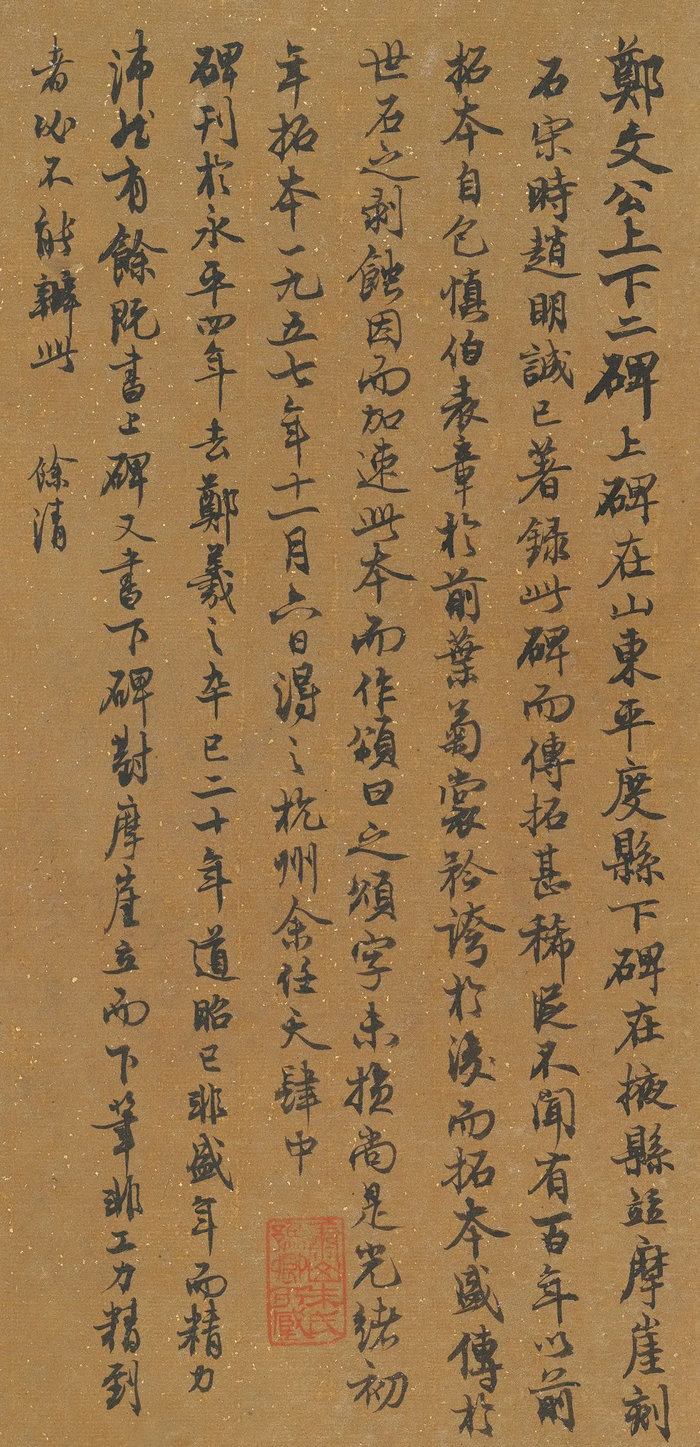 鄭文公上下二碑上碑在山東平度縣下碑在掖縣竝摩崖刻
石宋時趙明誠已著錄此碑而傳拓甚稀迄不聞有百年以前
拓本自包慎伯表章於前葉菊裳矜誇於後而拓本盛傳於
世石之剥蝕因而加速此本而作頌曰之頌字未損尚是光緒初
年拓本一九五七年十一月六日得之杭州余任天肆中
碑刊於永平四年去鄭羲之卒已二十年道昭已非盛年而精力
沛然有餘既書上碑又書下碑對摩崖立而下筆非工力精到
者必不能辦此 餘清